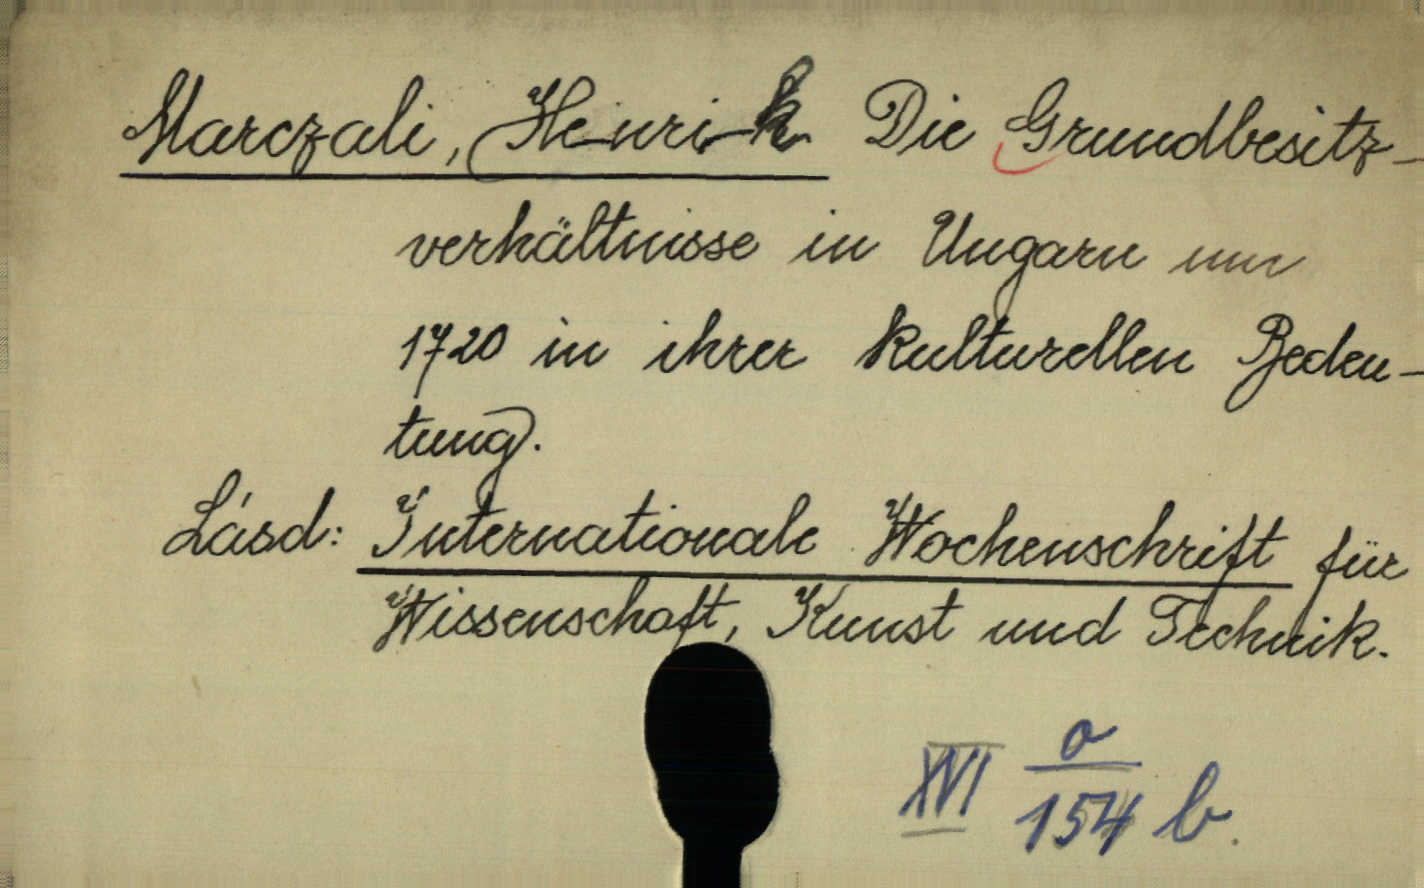 Marczali, Henrik Die Grundbesitz-
verhältnisse in Ungarn um
1720 in ihrer kulturellen Bedeu-
tung.
Lásd: Internationale Wochenschrift für
Wissenschaft, Kunst und Technik.
XVI a/154 b.